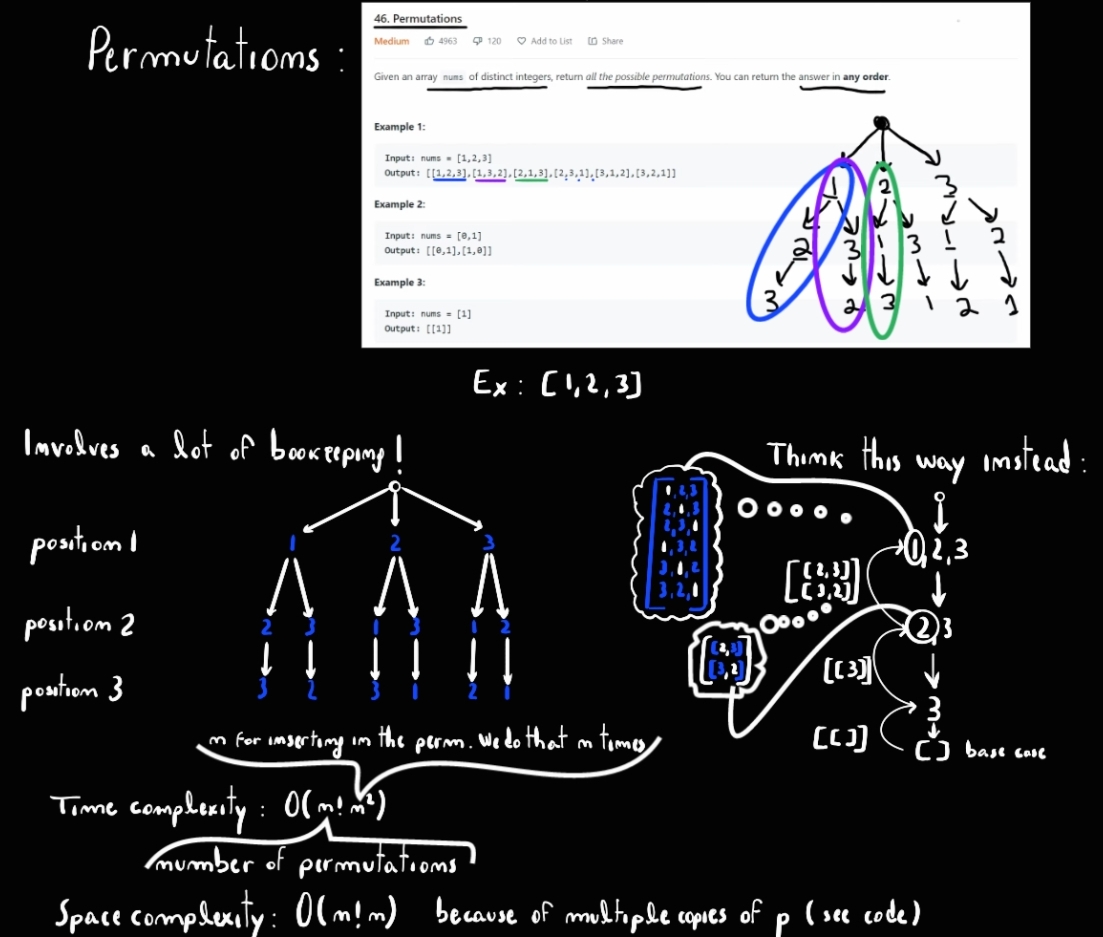 Permutations :
46. Permutations
Medium 4963 120 Add to List Share
Given an array nums of distinct integers, return all the possible permutations. You can return the answer in any order.
Example 1:
Input: nums = [1,2,3]
Output: [[1,2,3],[1,3,2],[2,1,3],[2,3,1],[3,1,2],[3,2,1]]
Example 2:
Input: nums = [0,1]
Output: [[0,1],[1,0]]
Example 3:
Input: nums = [1]
Output: [[1]]
1 2 3
2 3 1 3 1 2
3 2 3 1 2 1
Ex : [1,2,3]
Involves a lot of bookeeping!
position 1
1 2 3
position 2
2 3 1 3 1 2
position 3
3 2 3 1 2 1
Think this way instead :
1,2,3
2,1,3
2,3,1
1,3,2
3,1,2
3,2,1
1,2,3
[[2,3]
[3,2]]
2,3
[2,3]
[3,2]
[[3]]
3
[[]]
[] base case
n for inserting in the perm. We do that n times
Time complexity : O(n! n²)
number of permutations
Space complexity : O(n! n) because of multiple copies of p (see code)